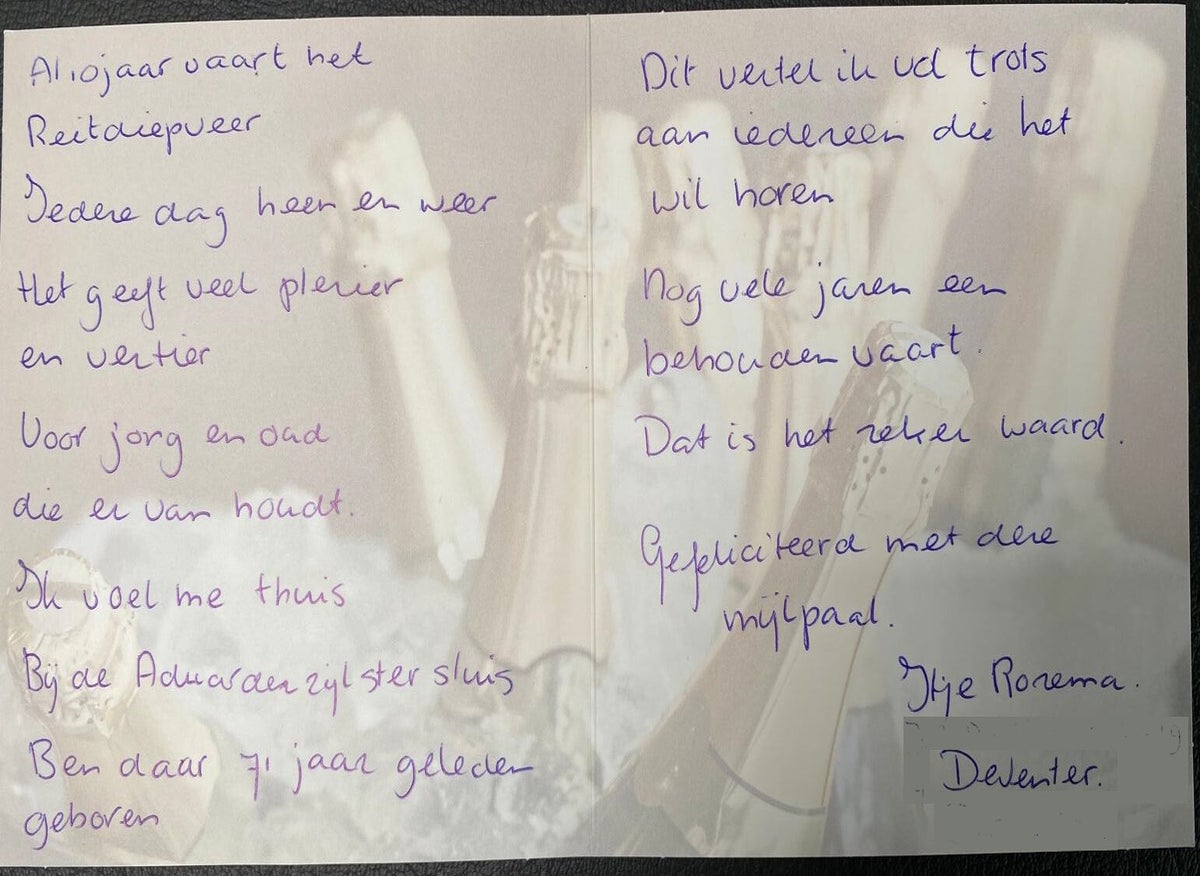 Al 10 jaar vaart het
Reitdiepveer
Iedere dag heen en weer
Het geeft veel plezier
en vertier
Voor jong en oud
die er van houdt.
Ik voel me thuis
Bij de Aduarderzijlster sluis
Ben daar 71 jaar geleden
geboren
Dit vertel ik vol trots
aan iedereen die het
wil horen
Nog vele jaren een
behouden vaart.
Dat is het zeker waard.
Gefeliciteerd met deze
mijlpaal.
Itje Rozema.
Deventer.